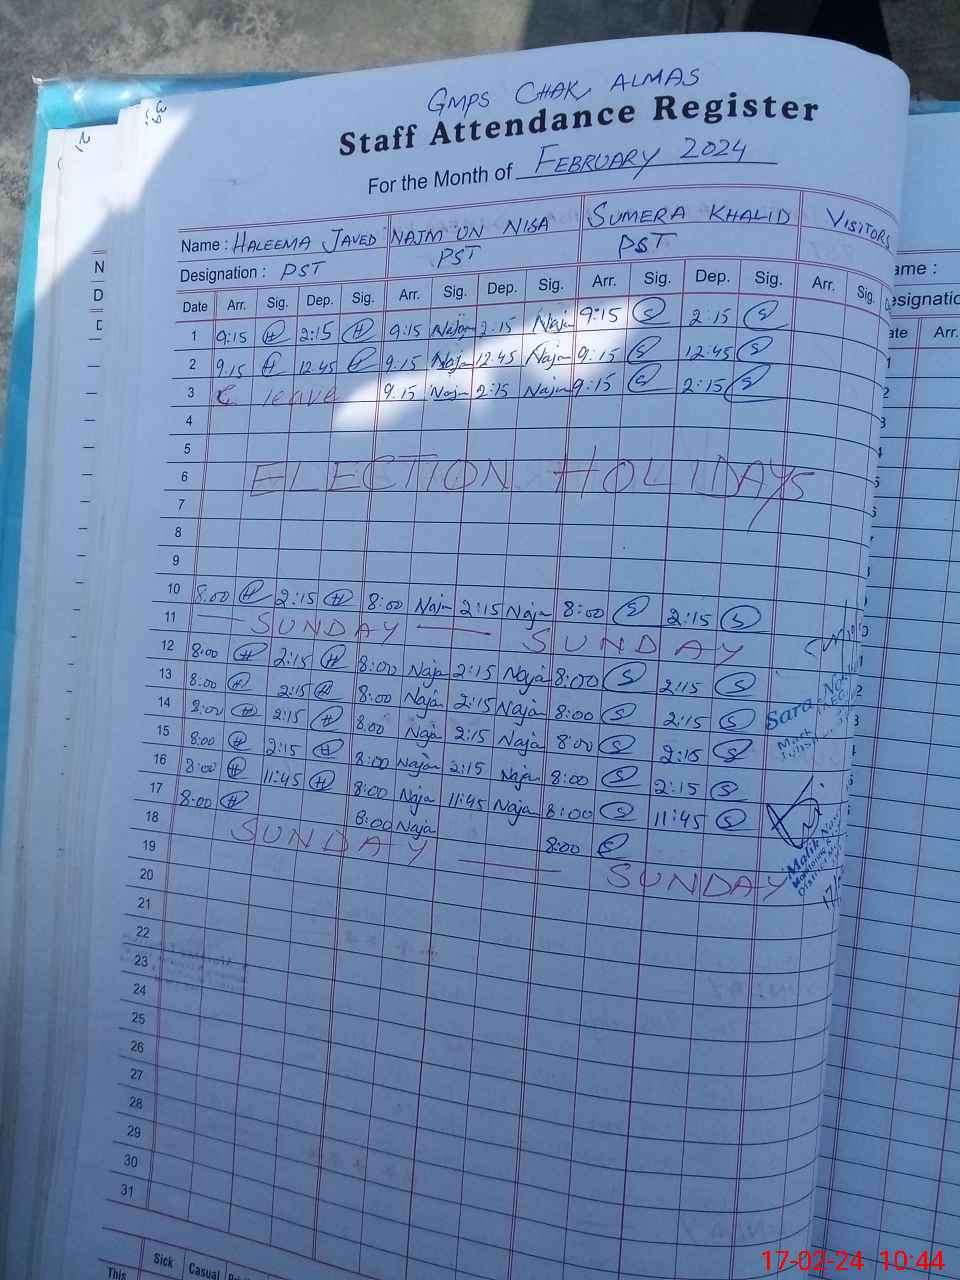 GMPS CHAK ALMAS
Staff Attendance Register
For the Month of FEBRUARY 2024
Name : HALEEMA JAVED NAJM UN NISA SUMERA KHALID VISITORS
Designation : PST PST PST
Date Arr. Sig. Dep. Sig. Arr. Sig. Dep. Sig. Arr. Sig. Dep. Sig. Arr. Sig.
1 9:15 H 2:15 H 9:15 Najm 2:15 Najm 9:15 S 2:15 S
2 9.15 H 12.45 H 9.15 Najm 12.45 Najm 9:15 S 12:45 S
3 leave 9.15 Najm 2:15 Najm 9:15 S 2:15 S
4
5
6 ELECTION HOLIDAYS
7
8
9
10 8:00 H 2:15 H 8:00 Najm 2:15 Najm 8:00 S 2:15 S
11 SUNDAY SUNDAY
12 8:00 H 2:15 H 8:00 Naja 2:15 Naja 8:00 S 2:15 S
13 8:00 H 2:15 H 8:00 Naja 2:15 Naja 8:00 S 2:15 S
14 8:00 H 2:15 H 8:00 Naja 2:15 Naja 8:00 S 2:15 S
15 8:00 H 2:15 H 8:00 Naja 2:15 Naja 8:00 S 2:15 S
16 8:00 H 11:45 H 8:00 Naja 11:45 Naja 8:00 S 11:45 S
17 8:00 H 8:00 Naja 8:00 S
18 SUNDAY SUNDAY
19
20
21
22
23
24
25
26
27
28
29
30
31
Sara
Malik
17/
This Sick Casual
ame :
esignatio
ate Arr.
17-02-24 10:44